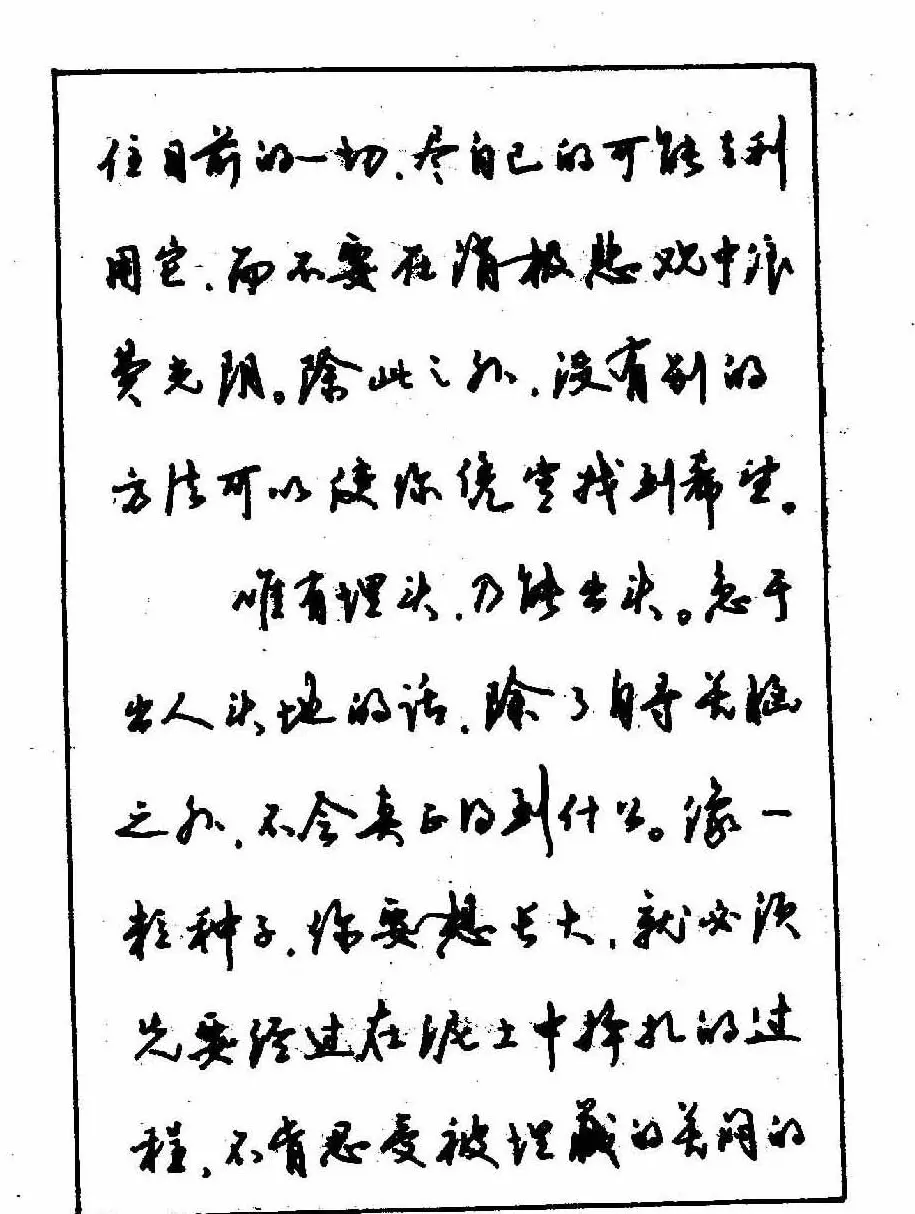 住目前的一切，尽自己的可能去利
用它，而不要在消极悲观中浪
费光阴。除此之外，没有别的
方法可以使你凭空找到希望。
唯有埋头，乃能出头。急于
出人头地的话，除了自寻苦恼
之外，不会真正得到什么。像一
粒种子，你要想长大，就必须
先要经过在泥土中挣扎的过
程，不肯忍受被埋藏的苦闷的